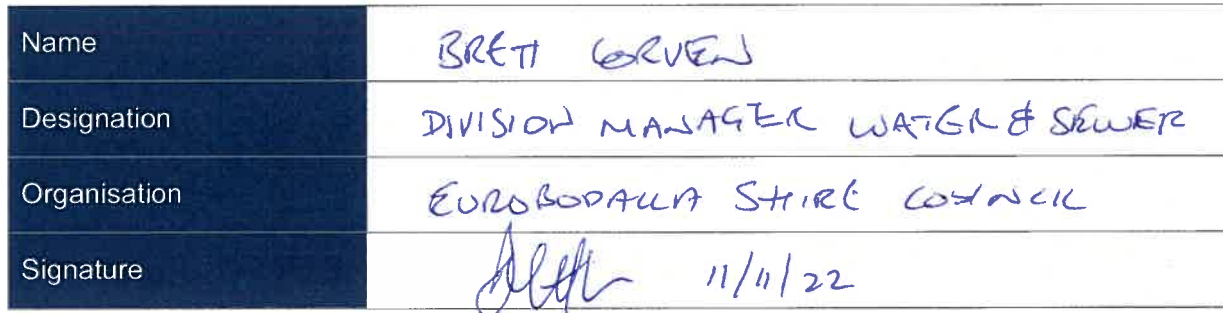 Name BRETT CORVEN
Designation DIVISION MANAGER WATER & SEWER
Organisation EUROBODALLA SHIRE COUNCIL
Signature 11/11/22